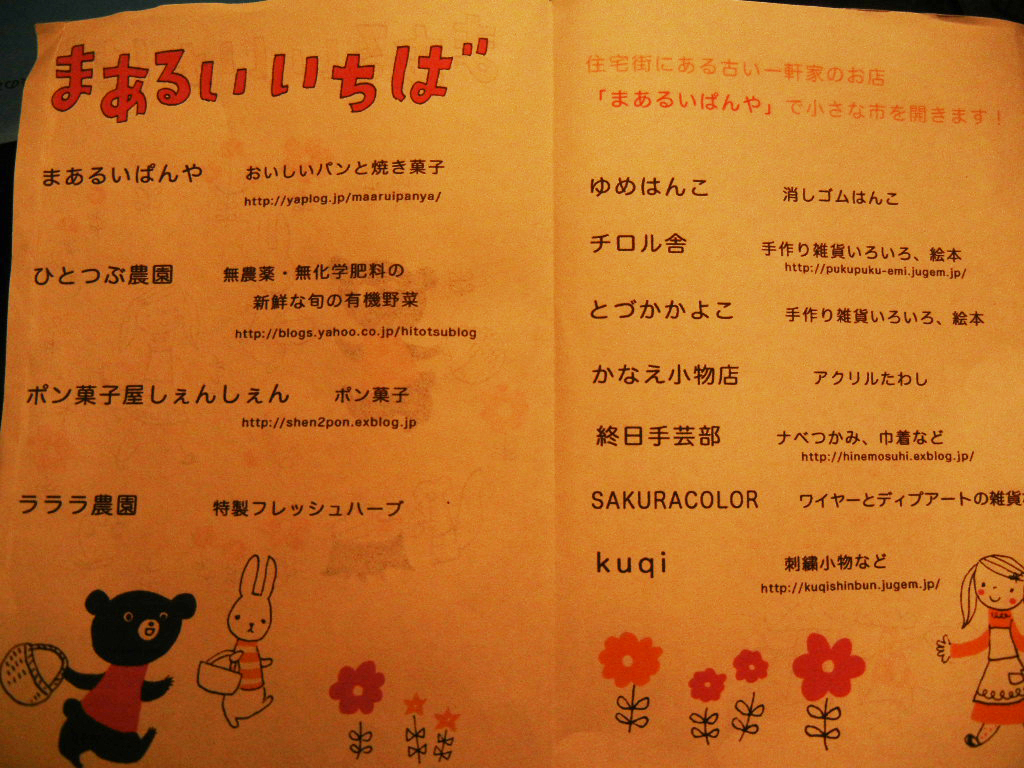 まあるいいちば
まあるいぱんや おいしいパンと焼き菓子
http://yaplog.jp/maaruipanya/
ひとつぶ農園 無農薬・無化学肥料の
新鮮な旬の有機野菜
http://blogs.yahoo.co.jp/hitotsublog
ポン菓子屋しぇんしぇん ポン菓子
http://shen2pon.exblog.jp
ラララ農園 特製フレッシュハーブ
住宅街にある古い一軒家のお店
「まあるいぱんや」で小さな市を開きます！
ゆめはんこ 消しゴムはんこ
チロル舎 手作り雑貨いろいろ、絵本
http://pukupuku-emi.jugem.jp/
とづかかよこ 手作り雑貨いろいろ、絵本
かなえ小物店 アクリルたわし
終日手芸部 ナベつかみ、巾着など
http://hinemosuhi.exblog.jp/
SAKURACOLOR ワイヤーとディプアートの雑貨
kuqi 刺繍小物など
http://kuqishinbun.jugem.jp/